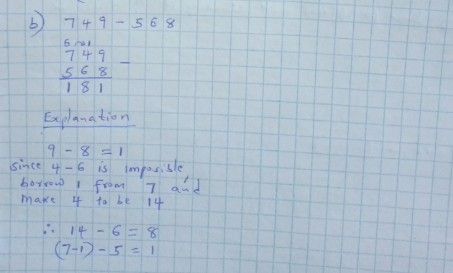 b) 749 - 568
749 -
568
181
Explanation
9 - 8 = 1
since 4 - 6 is imposible
borrow 1 from 7 and
make 4 to be 14
∴ 14 - 6 = 8
(7-1) - 5 = 1